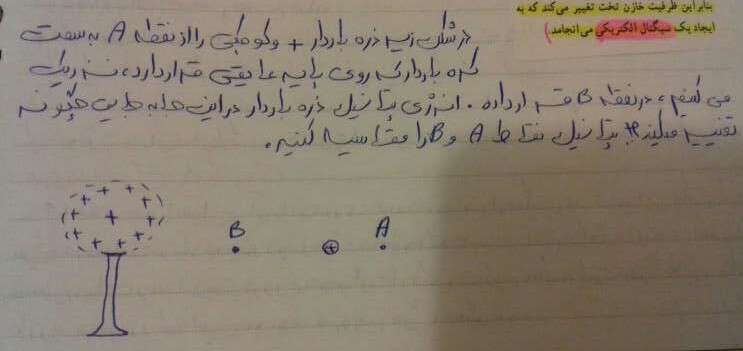 بنابراین ظرفیت خازن تخت تغییر می‌کند که به
ایجاد یک سیگنال الکتریکی می‌انجامد.)
در شکل زیر ذره باردار + و کوچکی را از نقطه A به سمت
کره باردار که روی پایه عایقی قرار دارد، نزدیک
می کنیم، در نقطه B قرار داده. انرژی پتانسیل ذره باردار در این جا به جایی چگونه
تغییر میکند؟ پتانسیل نقاط A و B را مقایسه کنید.
B
A
+
+ + + + + + + + + + +